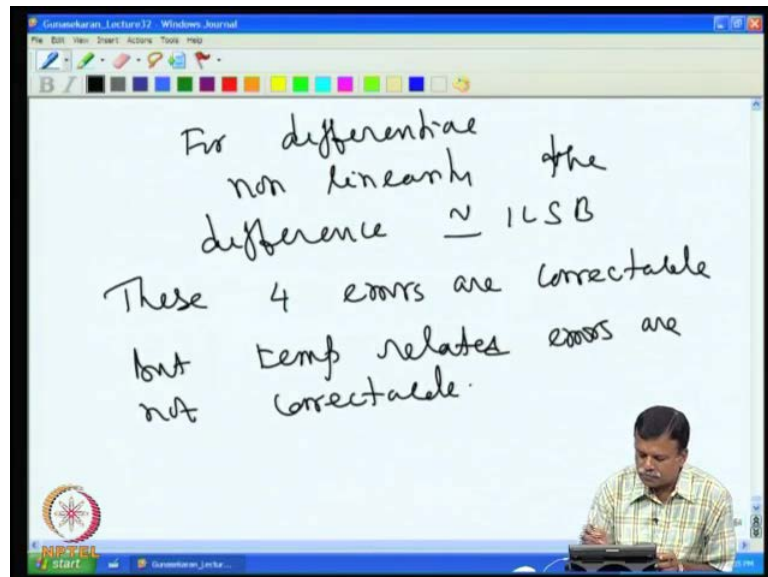 Gunasekaran_Lecture32 - Windows Journal
File Edit View Insert Actions Tools Help
B I
For differential
non linearity the
difference ≃ 1LSB
These 4 errors are correctable
but temp relates errors are
not correctable.
NPTEL
start
Gunasekaran_Lectur...
PM